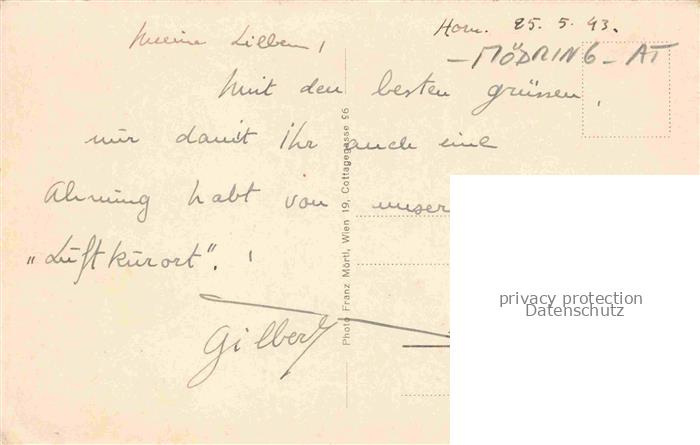 Horn. 25. 5. 43.
- MÖDRING - AT
Meine Lieben!
Mit den besten grüssen,
nur damit Ihr auch eine
Ahnung habt von unser
"Luftkurort". !
Gilbert
Photo Franz Mörtl, Wien 19, Cottagegasse 26
privacy protection
Datenschutz